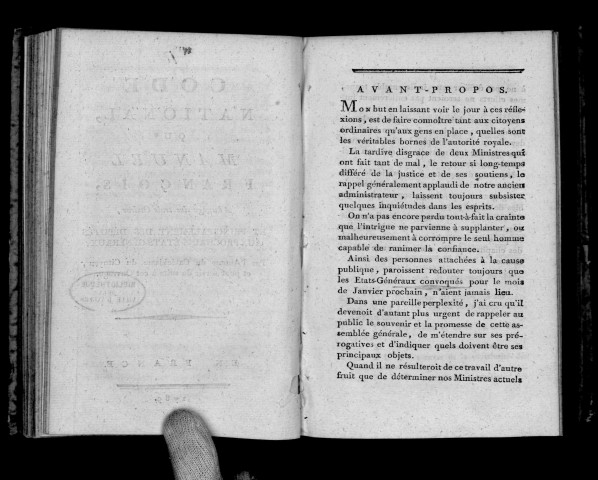 AVANT-PROPOS.
Mon but en laissant voir le jour à ces réfle-
xions, est de faire connoître tant aux citoyens
ordinaires qu'aux gens en place, quelles sont
les véritables bornes de l'autorité royale.
La tardive disgrace de deux Ministres qui
ont fait tant de mal, le retour si long-temps
différé de la justice et de ses soutiens, le
rappel généralement applaudi de notre ancien
administrateur, laissent toujours subsister
quelques inquiétudes dans les esprits.
On n'a pas encore perdu tout-à-fait la crainte
que l'intrigue ne parvienne à supplanter, ou
malheureusement à corrompre le seul homme
capable de ranimer la confiance.
Ainsi des personnes attachées à la cause
publique, paroissent redouter toujours que
les Etats-Généraux convoqués pour le mois
de Janvier prochain, n'aient jamais lieu.
Dans une pareille perplexité, j'ai cru qu'il
devenoit d'autant plus urgent de rappeler au
public le souvenir et la promesse de cette as-
semblée générale, de m'étendre sur ses pré-
rogatives et d'indiquer quels doivent être ses
principaux objets.
Quand il ne résulteroit de ce travail d'autre
fruit que de déterminer nos Ministres actuels